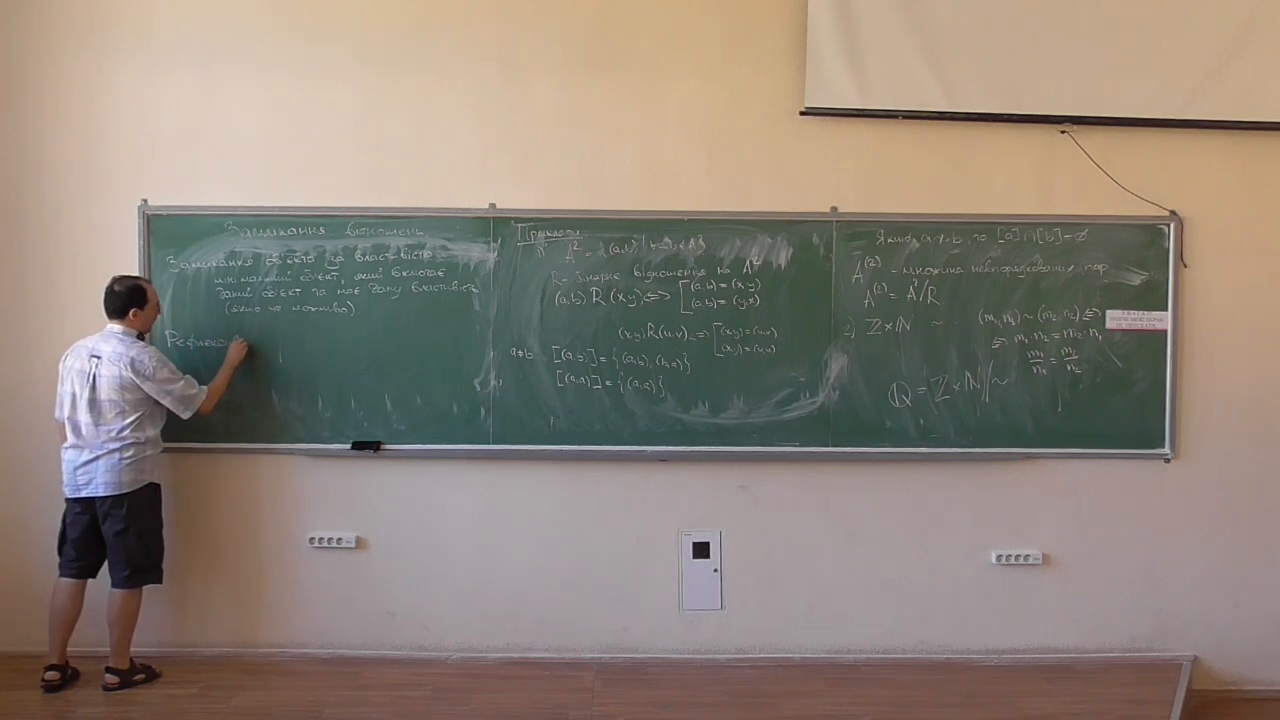 Замикання відношень
Замикання об'єкта за властивістю
мінімальний об'єкт, який включає
даний об'єкт та має дану властивість
(якщо це можливо)
Рефлекси
Приклади
1) A² = {(a,b) | a,b∈A}
R - бінарне відношення на A²
(a,b) R (x,y) ⟺ [(a,b)=(x,y)
(a,b)=(y,x)
(x,y)R(u,v) ⟹ [(x,y)=(u,v)
(x,y)=(v,u)
a≠b [(a,b)] = {(a,b), (b,a)}
[(a,a)] = {(a,a)}
Якщо a≁b, то [a]∩[b]=∅
A⁽²⁾ - множина невпорядкованих пар
A⁽²⁾ = A²/R
2) ℤ×ℕ ~ (m₁,n₁) ~ (m₂,n₂) ⟺
⟺ m₁·n₂ = m₂·n₁
m₁/n₁ = m₂/n₂
ℚ = ℤ×ℕ/~
УВАГА!